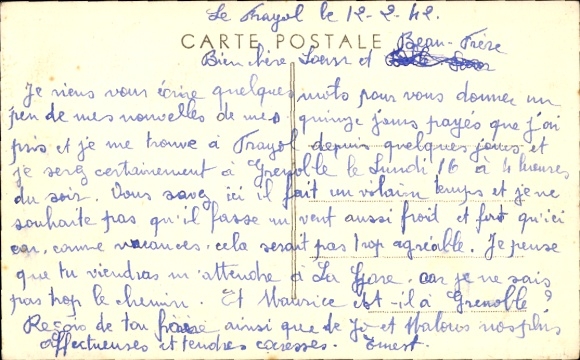 Le Frayol le 12-2-42.
CARTE POSTALE
Beau-Frère
Bien chère Soeur et
Je viens vous écrire quelques mots pour vous donner un
peu de mes nouvelles de mes quinze jours payés que j'ai
pris et je me trouve à Frayol depuis quelques jours et
je serez certainement à Grenoble le Lundi 16 à 4 heures
du soir. Vous savez ici il fait un vilain temps et je ne
souhaite pas qu'il fasse un vent aussi froid et fort qu'ici
car, comme vacances, cela serait pas trop agréable. Je pense
que tu viendras m'attendre à La Gare, car je ne sais
pas trop le chemin. Et Maurice est-il à Grenoble ?
Reçois de ton frère ainsi que de Jo et Malou nos plus
affectueuses et tendres caresses. Ernest.